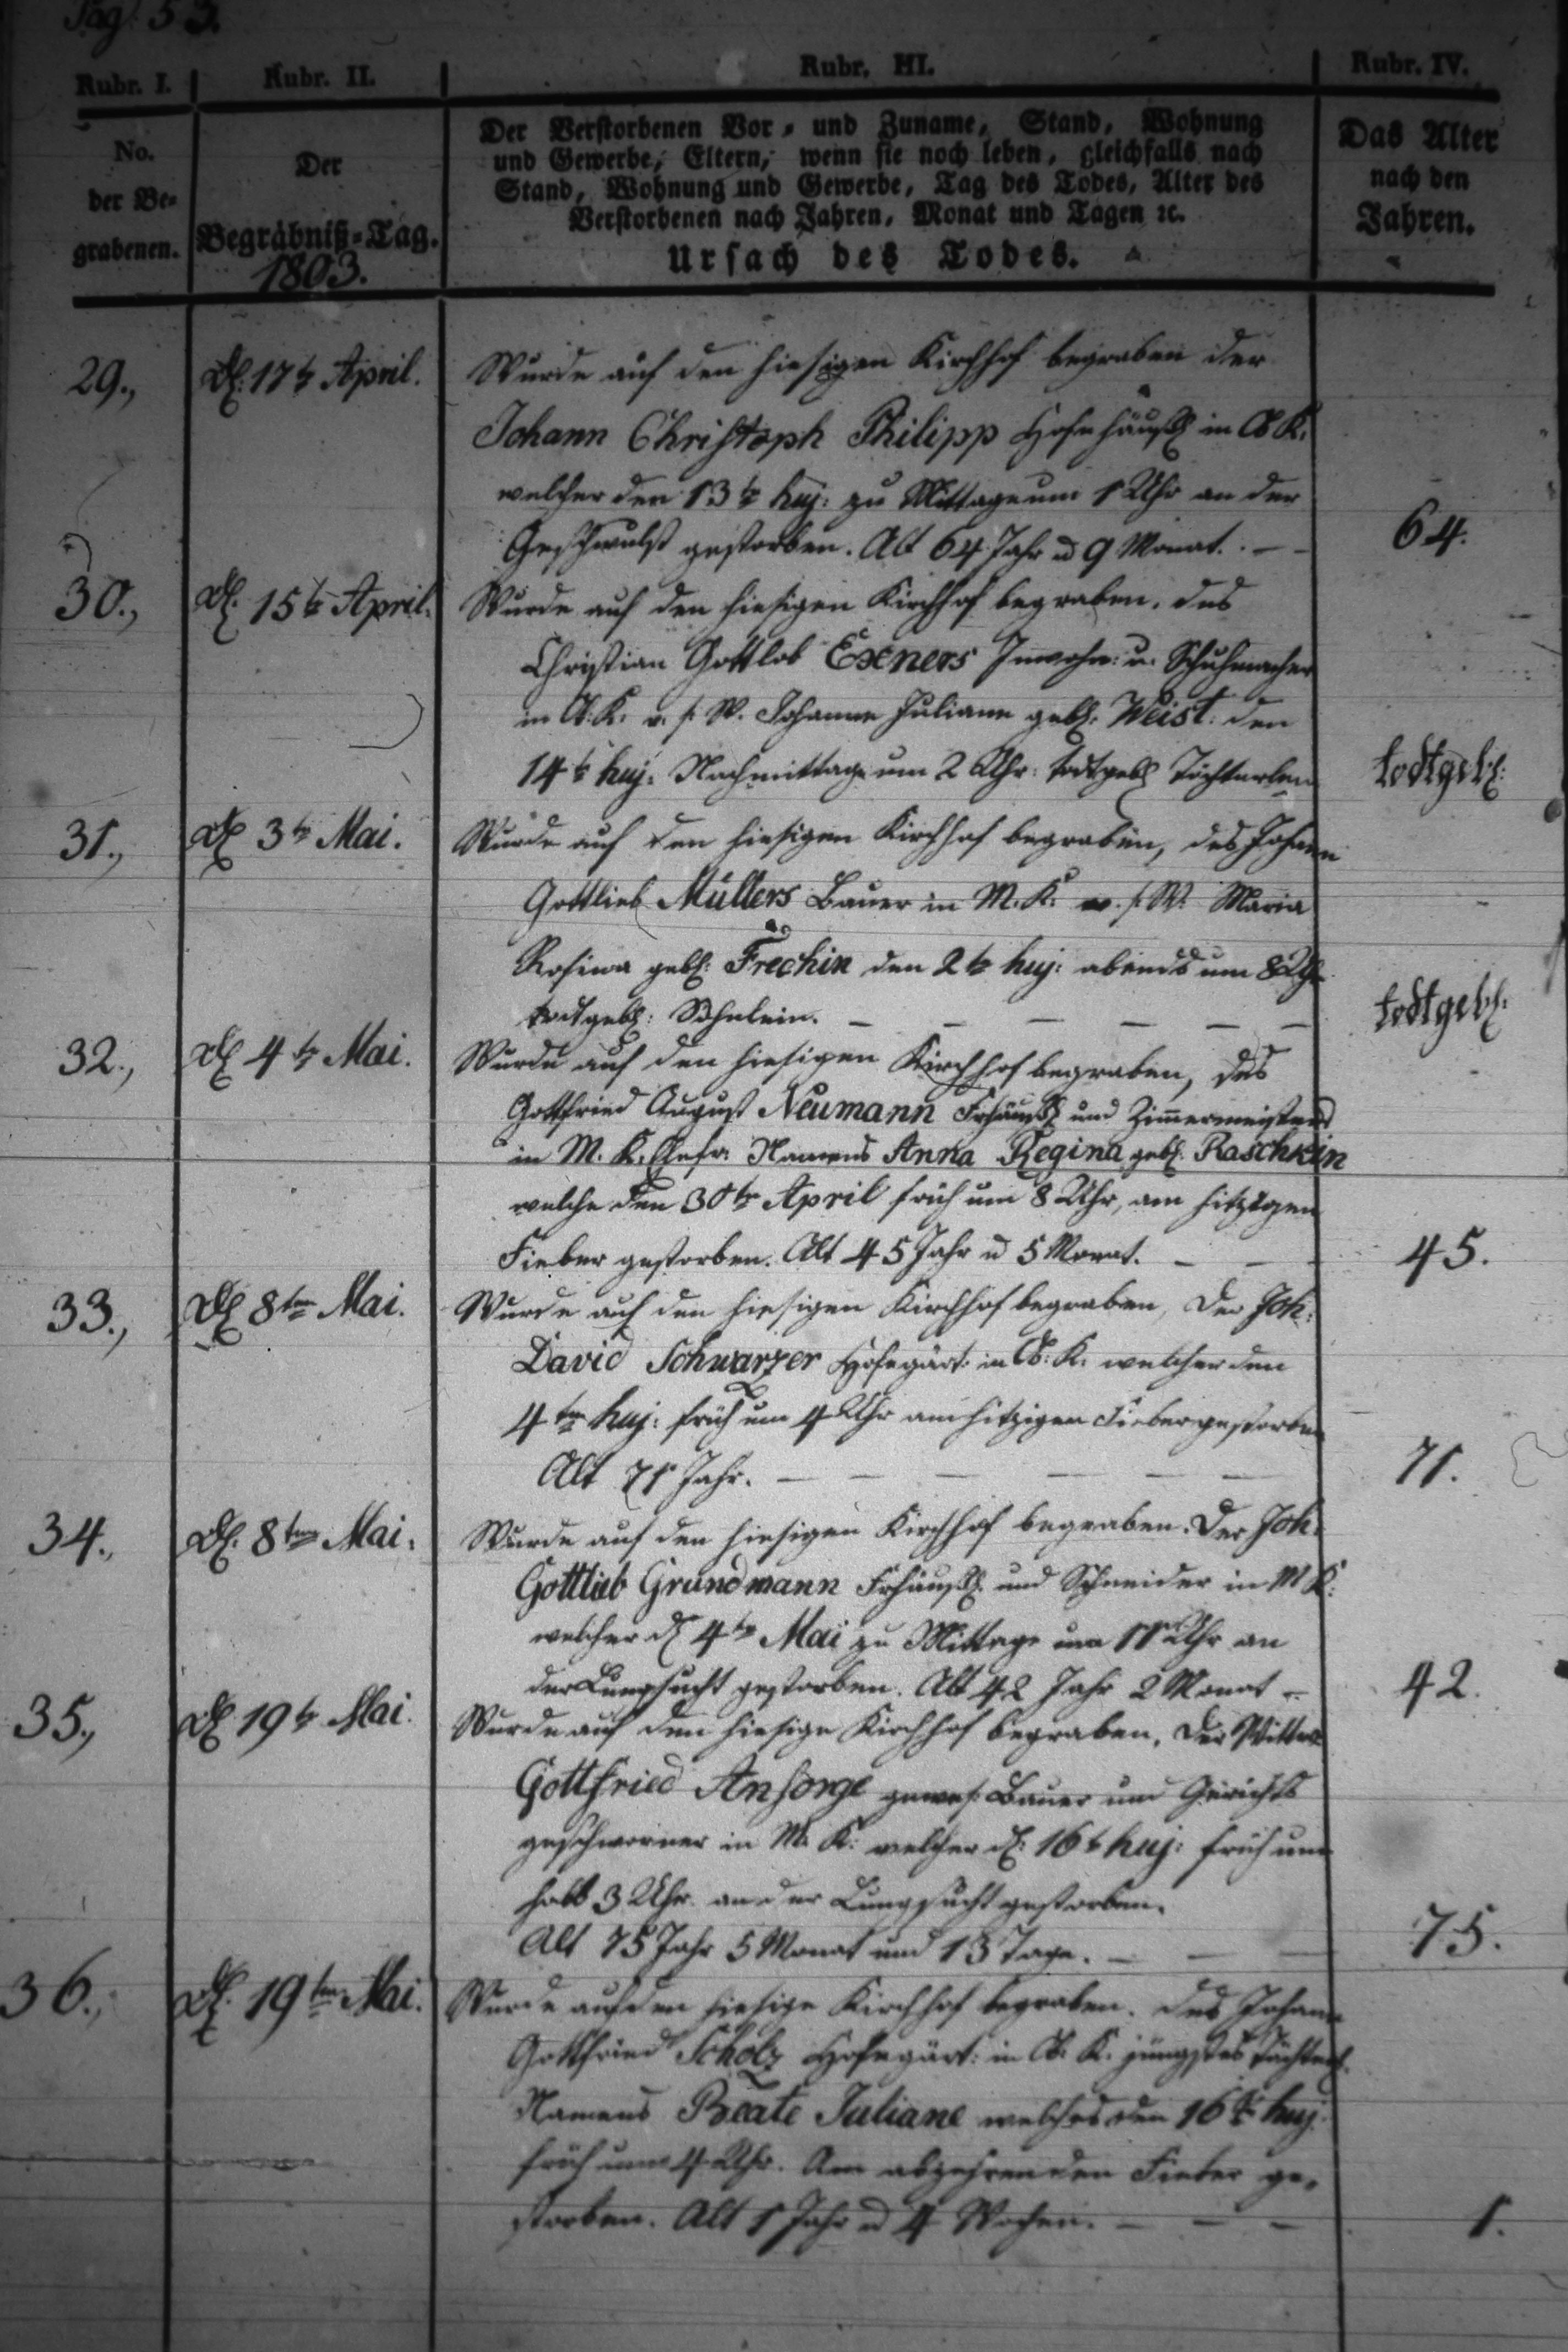 Pag: 53.
Rubr. I. Rubr. II. Rubr. III. Rubr. IV.
No. der Be-grabenen.
Der Begräbniß-Tag. 1803.
Der Verstorbenen Vor- und Zuname, Stand, Wohnung
und Gewerbe, Eltern, wenn sie noch leben, gleichfalls nach
Stand, Wohnung und Gewerbe, Tag des Todes, Alter des
Verstorbenen nach Jahren, Monat und Tagen ꝛc.
Ursach des Todes.
Das Alter nach den Jahren.
29., d. 17t April. Wurde auf den hiesigen Kirchhof begraben der
Johann Christoph Philipp Hofehäusl in O K.
welcher den 13te huj: zu Mittage um 1 Uhr an der
Geschwulst gestorben. Alt 64 Jahr u 9 Monat. — 64.
30., d. 15te April. Wurde auf den hiesigen Kirchhof begraben, des
Christian Gottlob Exners Inwohn: u. Schuhmacher
in O. K. v. s. W. Johanne Juliane geb: Weist: den
14te huj: Nachmittage um 2 Uhr: todtgeb Töchterlein todtgeb:
31., d 3te Mai. Wurde auf den hiesigen Kirchhof begraben, des Johann
Gottlieb Müllers Bauer in M. K. v. s. W. Maria
Rosina geb: Frechin den 2te huj: abends um 8 Uhr
todtgeb: Söhnlein. — — — — — — todtgeb:
32., d 4te Mai. Wurde auf den hiesigen Kirchhof begraben, des
Gottfried August Neumann Frhäusl und Zimmermeisters
in M. K. Ehefr: Namens Anna Regina geb: Raschkin
welche den 30te April früh um 8 Uhr, am hitzigen
Fieber gestorben. Alt 45 Jahr u 5 Monat. — — 45.
33., d 8ten Mai. Wurde auf den hiesigen Kirchhof begraben, Der Joh:
David Schwarzer Hofegärt: in O: K. welcher den
4ten huj: früh um 4 Uhr am hitzigen Fieber gestorben
Alt 71 Jahr. — — — — — — 71.
34., d. 8ten Mai. Wurde auf den hiesigen Kirchhof begraben. Der Joh:
Gottlieb Grundmann Frhäusl: und Schneider in M K:
welcher d 4te Mai zu Mittage um 11 Uhr an
der Lungsucht gestorben. Alt 42 Jahr 2 Monat — 42.
35., d 19t Mai. Wurde auf den hiesige Kirchhof begraben, Der Wittwer
Gottfried Ansorge gewes: Bauer und Gerichts
geschworner in M. K: welcher d: 16t huj: früh um
halb 3 Uhr. an der Lungsucht gestorben.
Alt 75 Jahr 5 Monat und 13 Tage. — — — 75.
36., d. 19ten Mai. Wurde auf den hiesige Kirchhof begraben. des Johann
Gottfried Scholz Hofegärt: in O. K. jüngstes Töchterl.
Namens Beate Juliane welches den 16te huj:
früh um 4 Uhr. Am abzehrenden Fieber ge-
storben. Alt 1 Jahr u 4 Wochen. — — — 1.